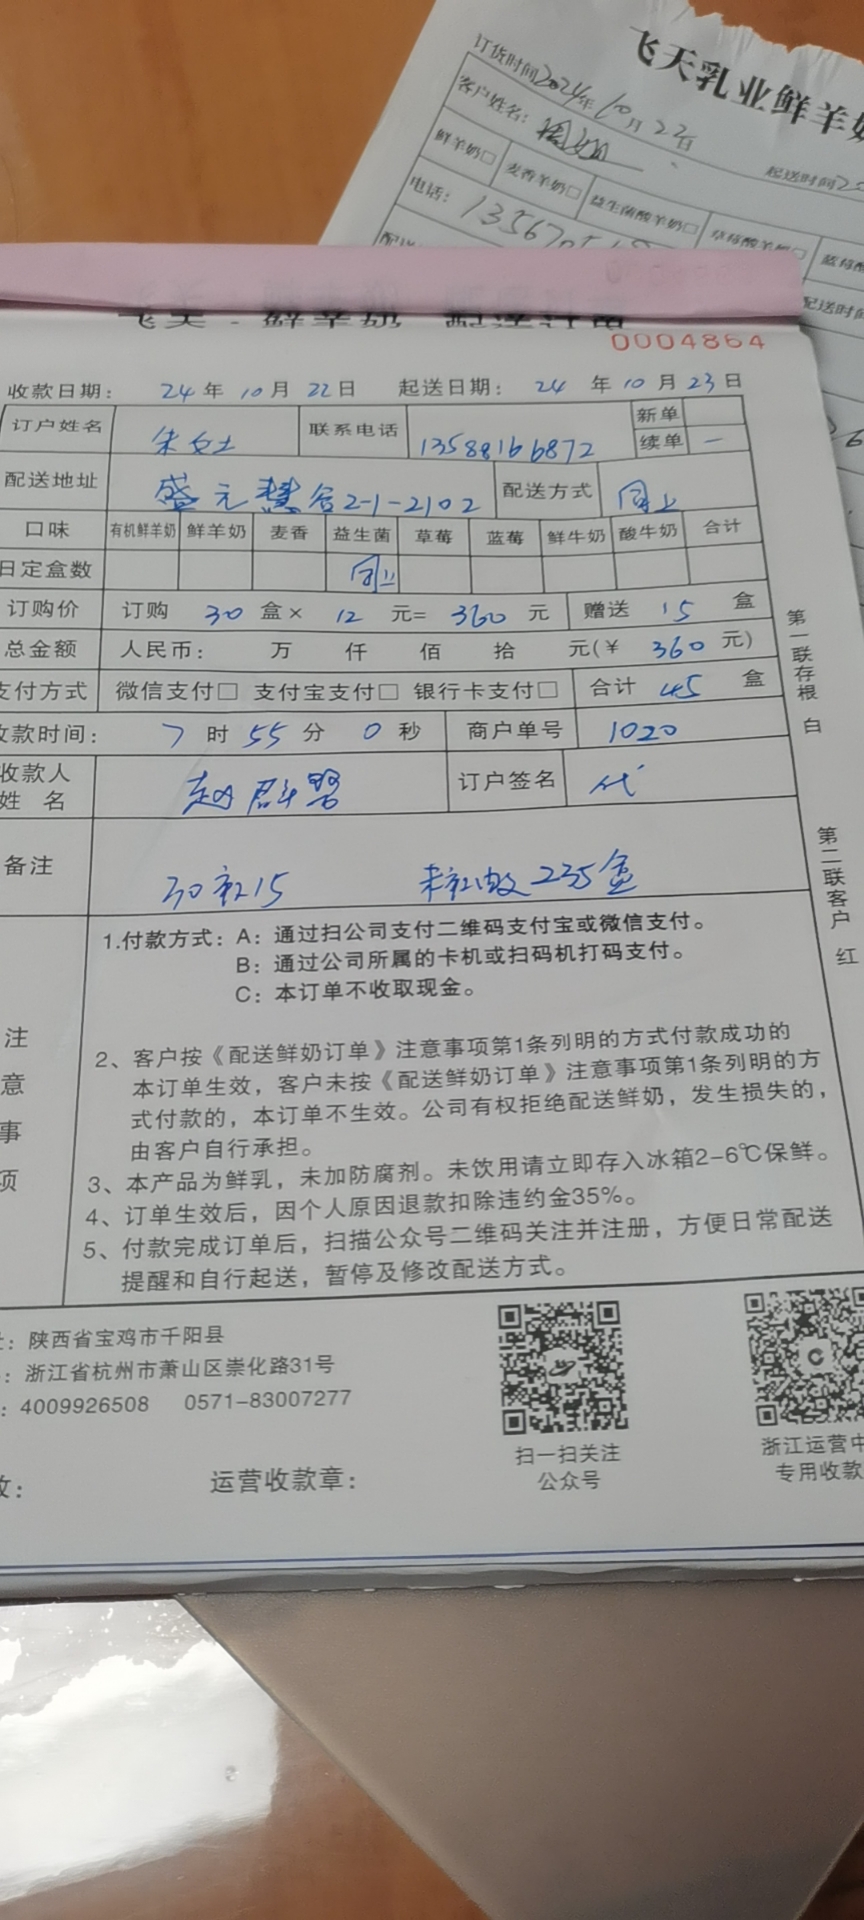 飞天乳业鲜羊奶
订货时间2024年10月22日
起送时间2
客户姓名:
鲜羊奶□ 麦香羊奶□ 益生菌酸羊奶□ 草莓酸羊奶□ 蓝莓酸
电话: 13567
配送时间
飞天·鲜羊奶 配送订单
0004864
收款日期: 24年10月22日 起送日期: 24年10月23日
订户姓名 朱女士 联系电话 13588166872 新单
续单 一
配送地址 盛元慧谷2-1-2102 配送方式 同上
口味 有机鲜羊奶 鲜羊奶 麦香 益生菌 草莓 蓝莓 鲜牛奶 酸牛奶 合计
日定盒数 同上
订购价 订购 30 盒× 12 元= 360 元 赠送 15 盒
总金额 人民币: 万 仟 佰 拾 元(¥ 360 元)
支付方式 微信支付□ 支付宝支付□ 银行卡支付□ 合计 45 盒
收款时间: 7 时 55 分 0 秒 商户单号 1020
收款人
姓名 赵群 订户签名 代
备注 30送15 235盒
第一联存根 白
第二联客户 红
注意事项
1.付款方式: A: 通过扫公司支付二维码支付宝或微信支付。
B: 通过公司所属的卡机或扫码机打码支付。
C: 本订单不收取现金。
2、客户按《配送鲜奶订单》注意事项第1条列明的方式付款成功的
本订单生效，客户未按《配送鲜奶订单》注意事项第1条列明的方
式付款的，本订单不生效。公司有权拒绝配送鲜奶，发生损失的，
由客户自行承担。
3、本产品为鲜乳，未加防腐剂。未饮用请立即存入冰箱2-6℃保鲜。
4、订单生效后，因个人原因退款扣除违约金35%。
5、付款完成订单后，扫描公众号二维码关注并注册，方便日常配送
提醒和自行起送，暂停及修改配送方式。
: 陕西省宝鸡市千阳县
: 浙江省杭州市萧山区崇化路31号
: 4009926508 0571-83007277
扫一扫关注
公众号
浙江运营中
专用收款
运营收款章: